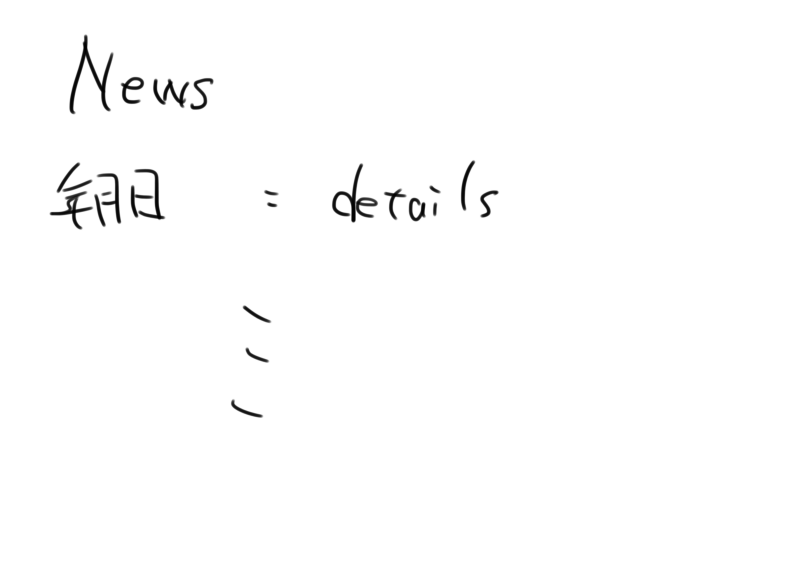 News
年月日 : details